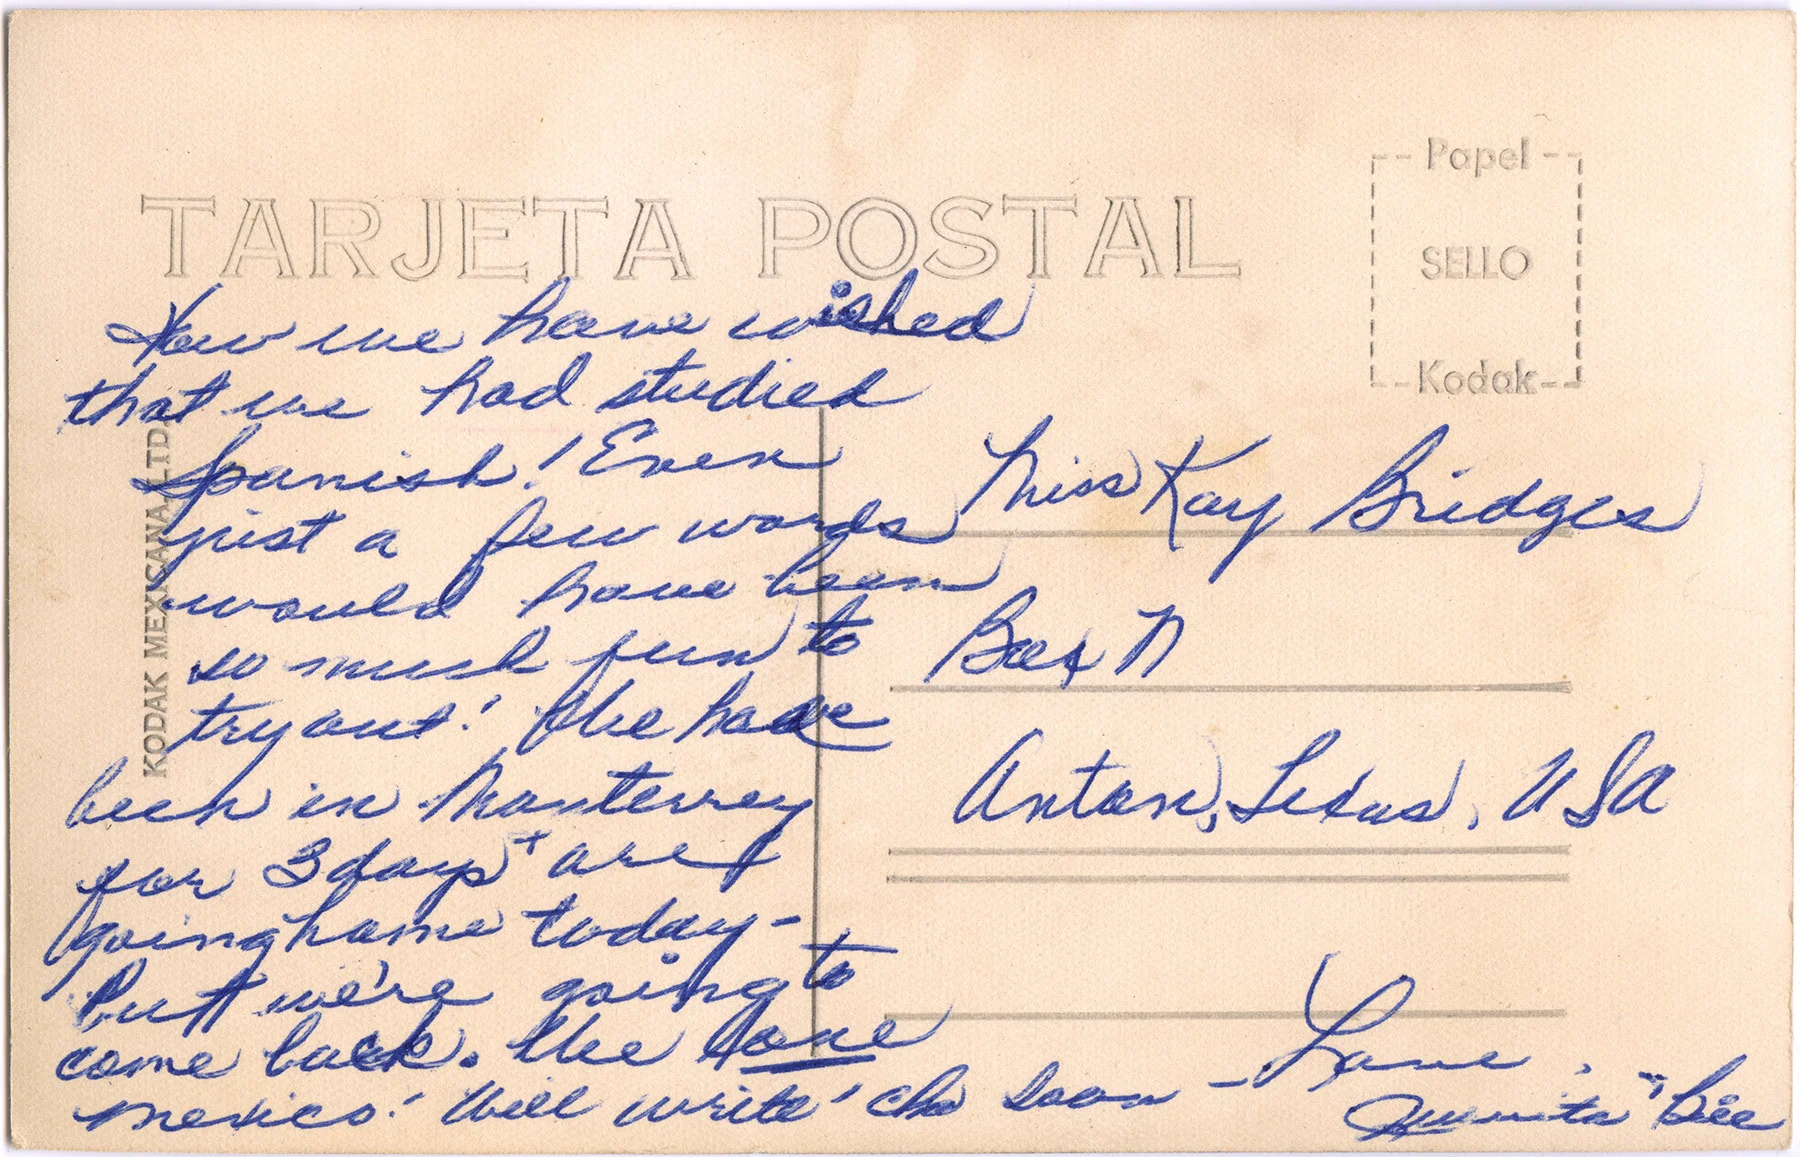 TARJETA POSTAL
Papel
SELLO
Kodak
KODAK MEXICANA, LTD.
How we have wished
that we had studied
Spanish! Even
just a few words
would have been
so much fun to
try out! We have
been in Monterrey
for 3 days + are
going home today -
but we're going to
come back. We love
Mexico! Will write 'cha soon - Love,
Juanita "Bee
Miss Kay Bridges
Box N
Anton, Texas, USA